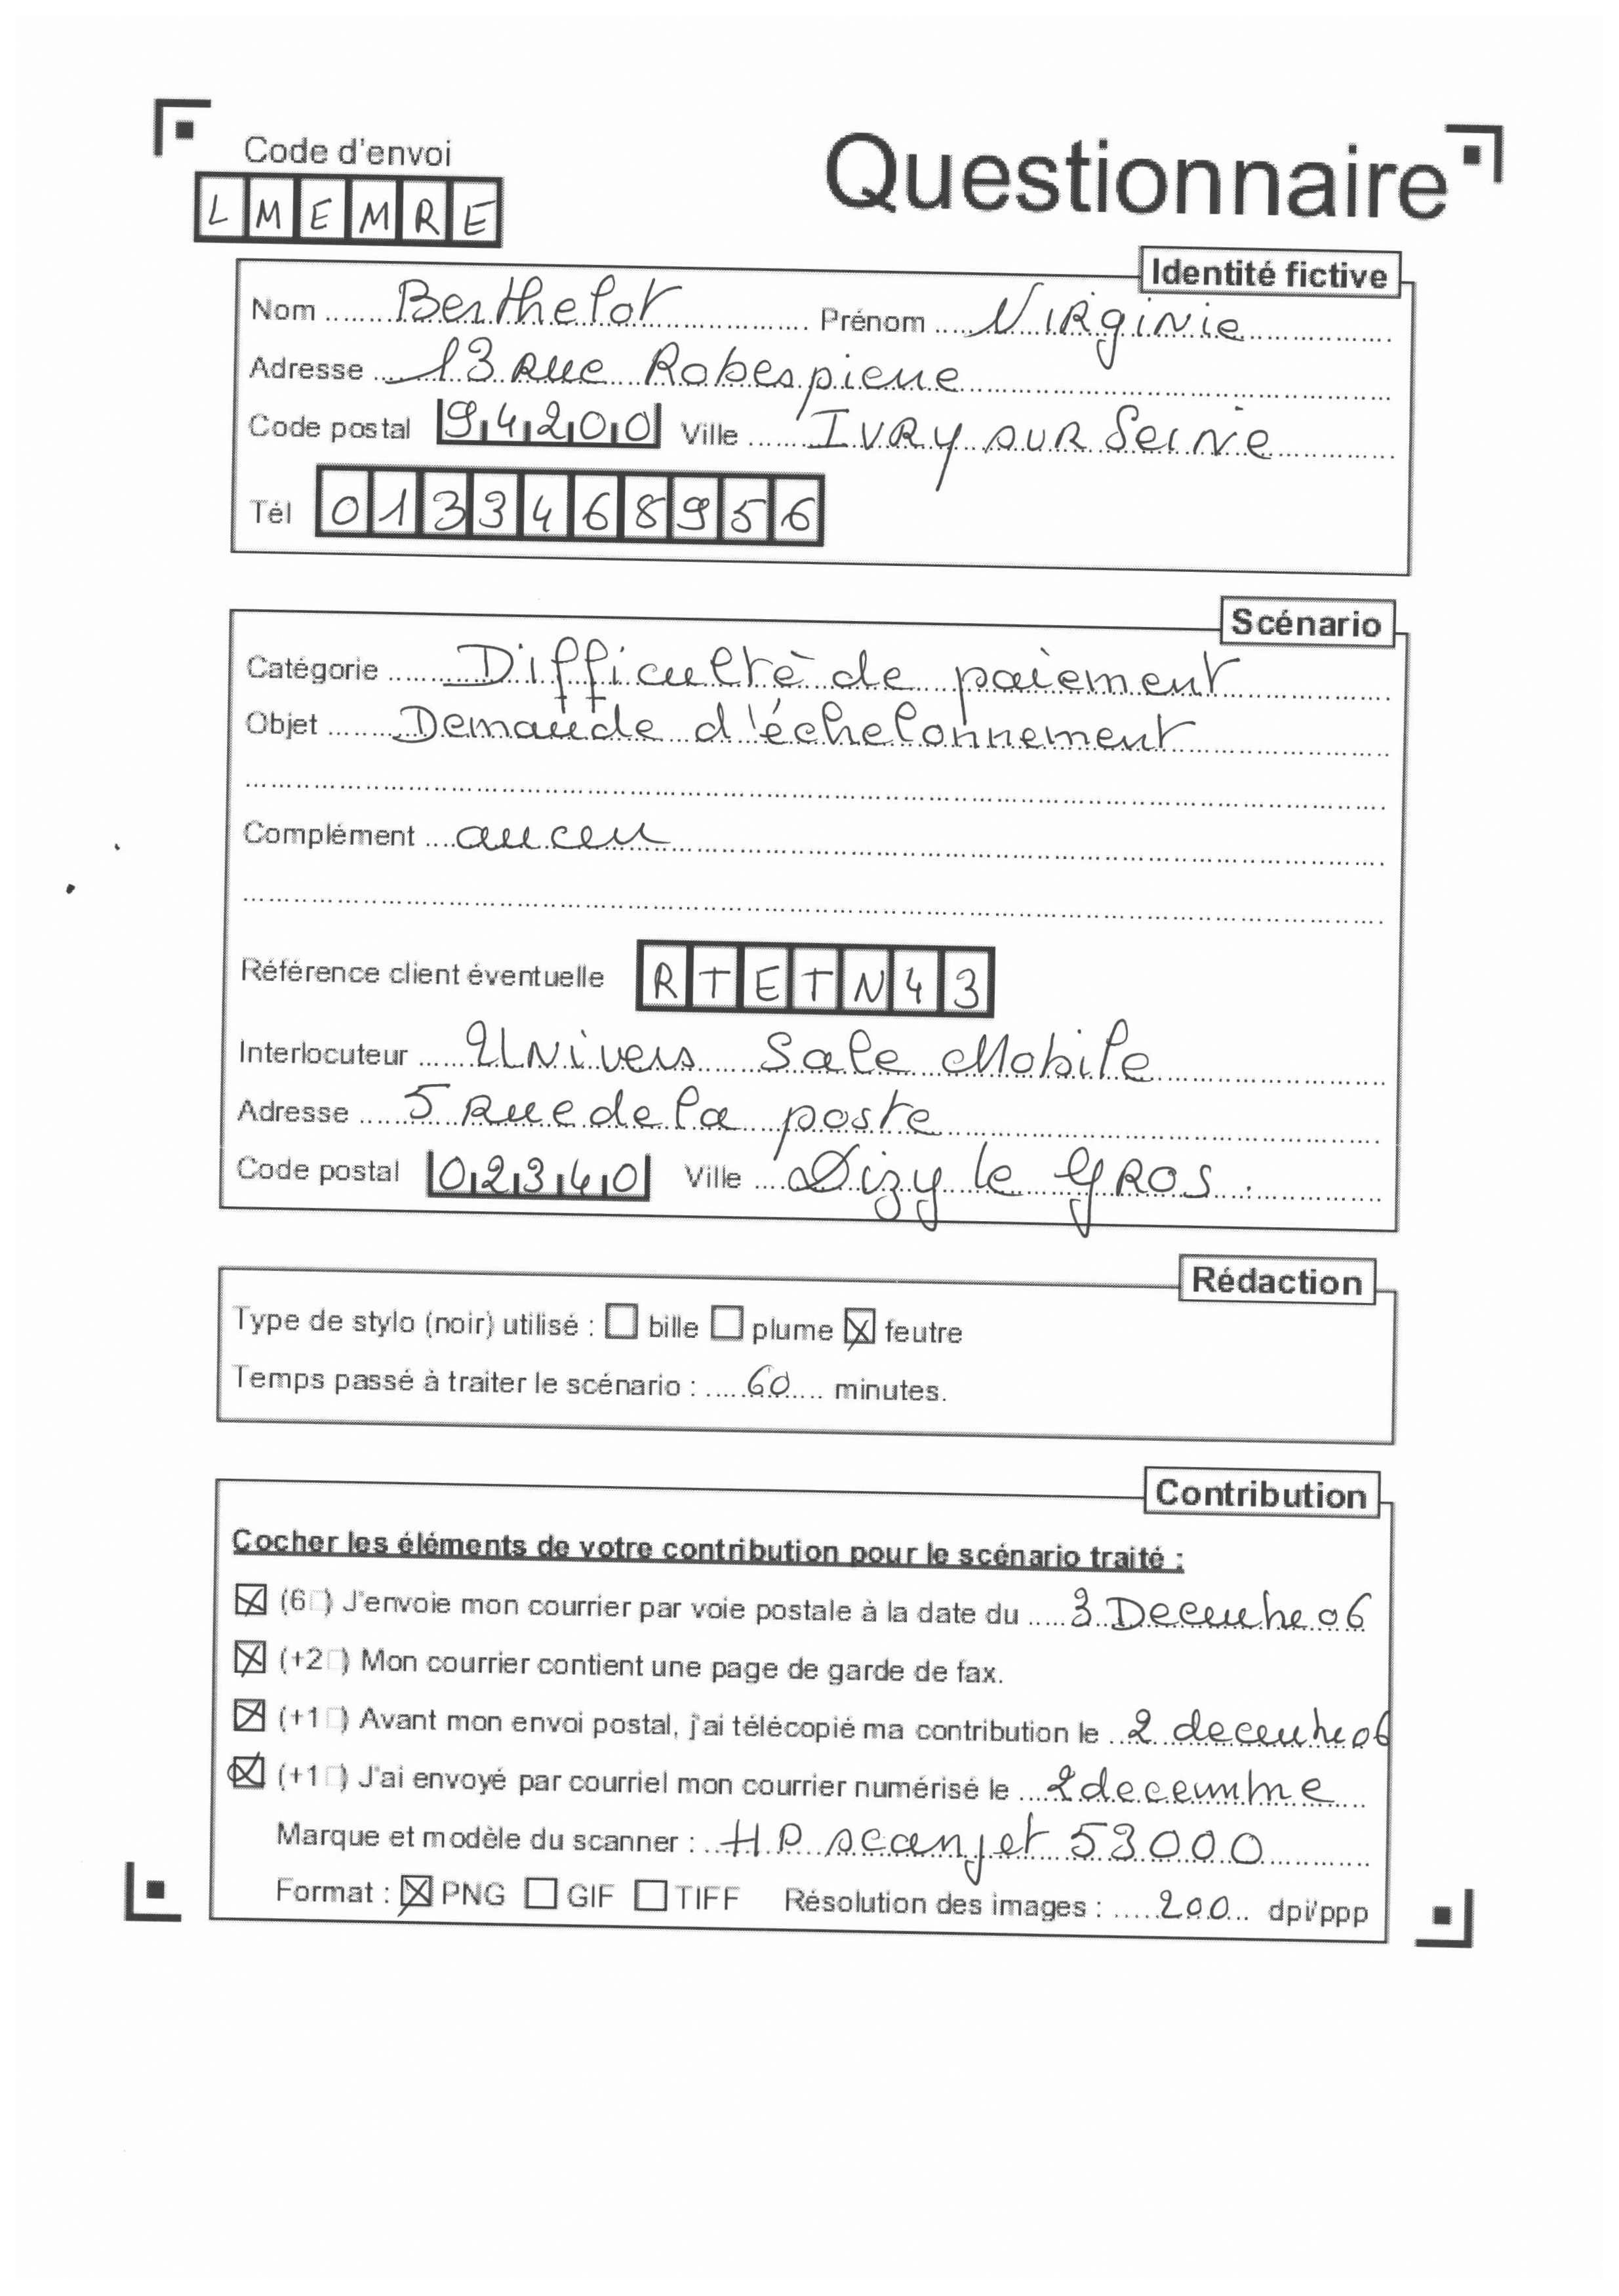 Code d'envoi
LMEMRE
Questionnaire
Identité fictive
Nom Berthelot Prénom Virginie
Adresse 13 Rue Robespierre
Code postal 94200 Ville IVRY sur Seine
Tél 0133468956
Scénario
Catégorie Difficulté de paiement
Objet Demande d'échelonnement
Complément aucun
Référence client éventuelle RTETN43
Interlocuteur Univers Sale Mobile
Adresse 5 Rue de la poste
Code postal 02340 Ville Dizy le GROS.
Rédaction
Type de stylo (noir) utilisé : ☐ bille ☐ plume ☒ feutre
Temps passé à traiter le scénario : 60 minutes.
Contribution
Cocher les éléments de votre contribution pour le scénario traité :
☒ (6 ) J'envoie mon courrier par voie postale à la date du 3 Decembre 06
☒ (+2 ) Mon courrier contient une page de garde de fax.
☒ (+1 ) Avant mon envoi postal, j'ai télécopié ma contribution le 2 decembre 06
☒ (+1 ) J'ai envoyé par courriel mon courrier numérisé le 2 decembre
Marque et modèle du scanner : HP scanjet 53000
Format : ☒ PNG ☐ GIF ☐ TIFF Résolution des images : 200 dpi/ppp